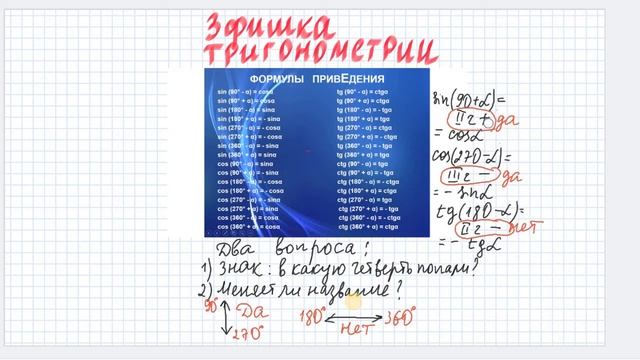 3 фишка
тригонометрии
ФОРМУЛЫ ПРИВЕДЕНИЯ
sin (90° - α) = cosα
sin (90° + α) = cosα
sin (180° - α) = sinα
sin (180° + α) = - sinα
sin (270° - α) = - cosα
sin (270° + α) = - cosα
sin (360° - α) = - sinα
sin (360° + α) = sinα
cos (90° - α) = sinα
cos (90° + α) = - sinα
cos (180° - α) = - cosα
cos (180° + α) = - cosα
cos (270° - α) = - sinα
cos (270° + α) = sinα
cos (360° - α) = cosα
cos (360° + α) = cosα
tg (90° - α) = ctgα
tg (90° + α) = - ctgα
tg (180° - α) = - tgα
tg (180° + α) = tgα
tg (270° - α) = ctgα
tg (270° + α) = - ctgα
tg (360° - α) = - tgα
tg (360° + α) = tgα
ctg (90° - α) = tgα
ctg (90° + α) = - tgα
ctg (180° - α) = - ctgα
ctg (180° + α) = ctgα
ctg (270° - α) = tgα
ctg (270° + α) = - tgα
ctg (360° - α) = - ctgα
ctg (360° + α) = ctgα
sin(90+α)=
II г + да
= cosα
cos(270-α)=
III г - да
= - sinα
tg(180-α)=
II г - нет
= - tgα
Два вопроса:
1) Знак: в какую четверть попали?
2) Меняет ли название?
90° Да
270°
180° нет 360°